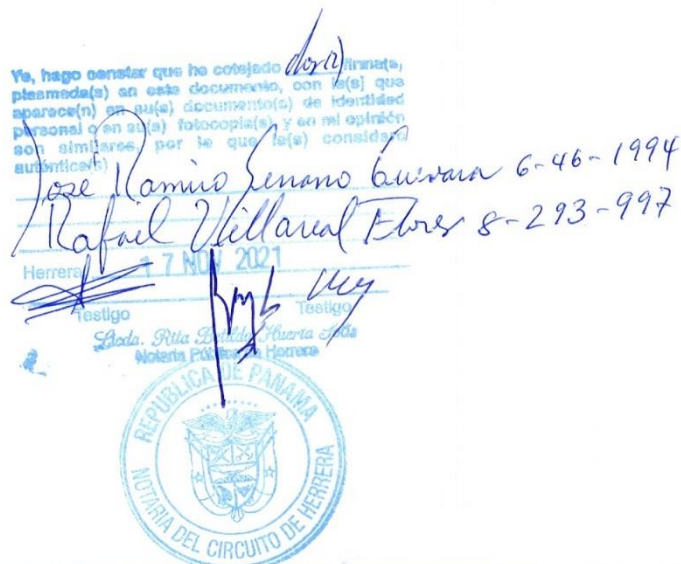 Yo, hago constar que he cotejado dos(2) firma(s),
plasmada(s) en este documento, con la(s) que
aparece(n) en su(s) documento(s) de identidad
personal o en su(s) fotocopia(s), y en mi opinión
son similares, por lo que la(s) considero
auténtica(s)
José Ramiro Serrano Guevara 6-46-1994
Rafael Villareal Flores 8-293-997
Herrera 17 NOV 2021
Testigo Testigo
Licda. Rita Huerta Solís
Notaria Pública de Herrera
REPUBLICA DE PANAMA
NOTARIA DEL CIRCUITO DE HERRERA